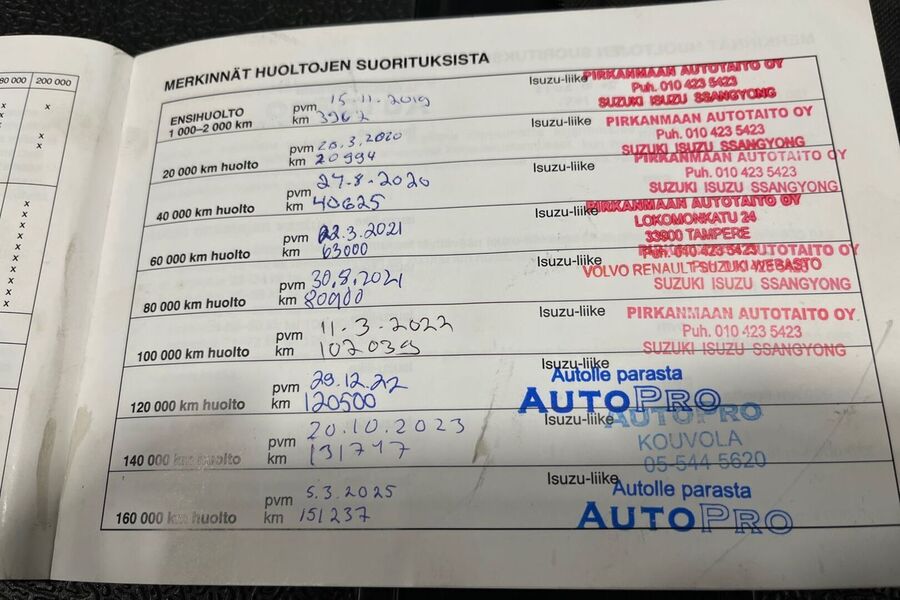 80 000 200 000
MERKINNÄT HUOLTOJEN SUORITUKSISTA
ENSIHUOLTO
1 000–2 000 km
pvm 15.11.2019
km 3962
Isuzu-liike
PIRKANMAAN AUTOTAITO OY
Puh. 010 423 5423
SUZUKI ISUZU SSANGYONG
20 000 km huolto
pvm 20.3.2020
km 20994
Isuzu-liike
PIRKANMAAN AUTOTAITO OY
Puh. 010 423 5423
SUZUKI ISUZU SSANGYONG
40 000 km huolto
pvm 27.8.2020
km 40625
Isuzu-liike
PIRKANMAAN AUTOTAITO OY
Puh. 010 423 5423
SUZUKI ISUZU SSANGYONG
60 000 km huolto
pvm 22.3.2021
km 63000
Isuzu-liike
PIRKANMAAN AUTOTAITO OY
LOKOMONKATU 24
33900 TAMPERE
Puh. 010 423 5423
80 000 km huolto
pvm 30.8.2021
km 80900
Isuzu-liike
AUTOTAITO OY
VOLVO RENAULT SUZUKI WEBASTO
SUZUKI ISUZU SSANGYONG
100 000 km huolto
pvm 11.3.2022
km 102039
Isuzu-liike
PIRKANMAAN AUTOTAITO OY
Puh. 010 423 5423
SUZUKI ISUZU SSANGYONG
120 000 km huolto
pvm 29.12.22
km 120500
Isuzu-liike
Autolle parasta
AUTOPRO
140 000 km huolto
pvm 20.10.2023
km 131747
Isuzu-liike
AUTOPRO
KOUVOLA
05-544 5620
160 000 km huolto
pvm 5.3.2025
km 151237
Isuzu-liike
Autolle parasta
AUTOPRO